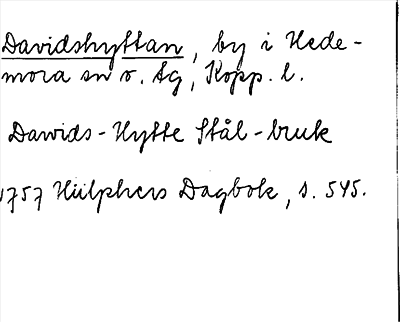 Davidshyttan, by i Hede-
mora sn o. tg, Kopp. l.
Dawids-Hytte Stål-bruk
1757 Hülphers Dagbok, s. 545.